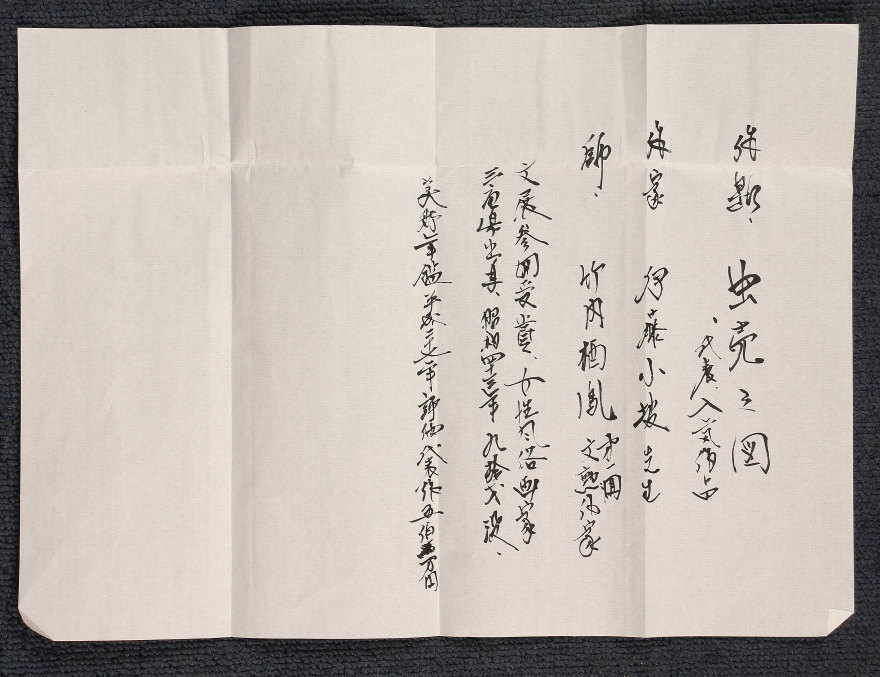 作題、虫売之図
、代表、人気作品
作家 伊藤小坡先生
師、竹内栖鳳 第一回文勲作家
文展参回受賞、女性風俗画家
三重県出身、昭和四十三年 九拾才没、
美術年鑑 平成二七年評価代表作五佰万円